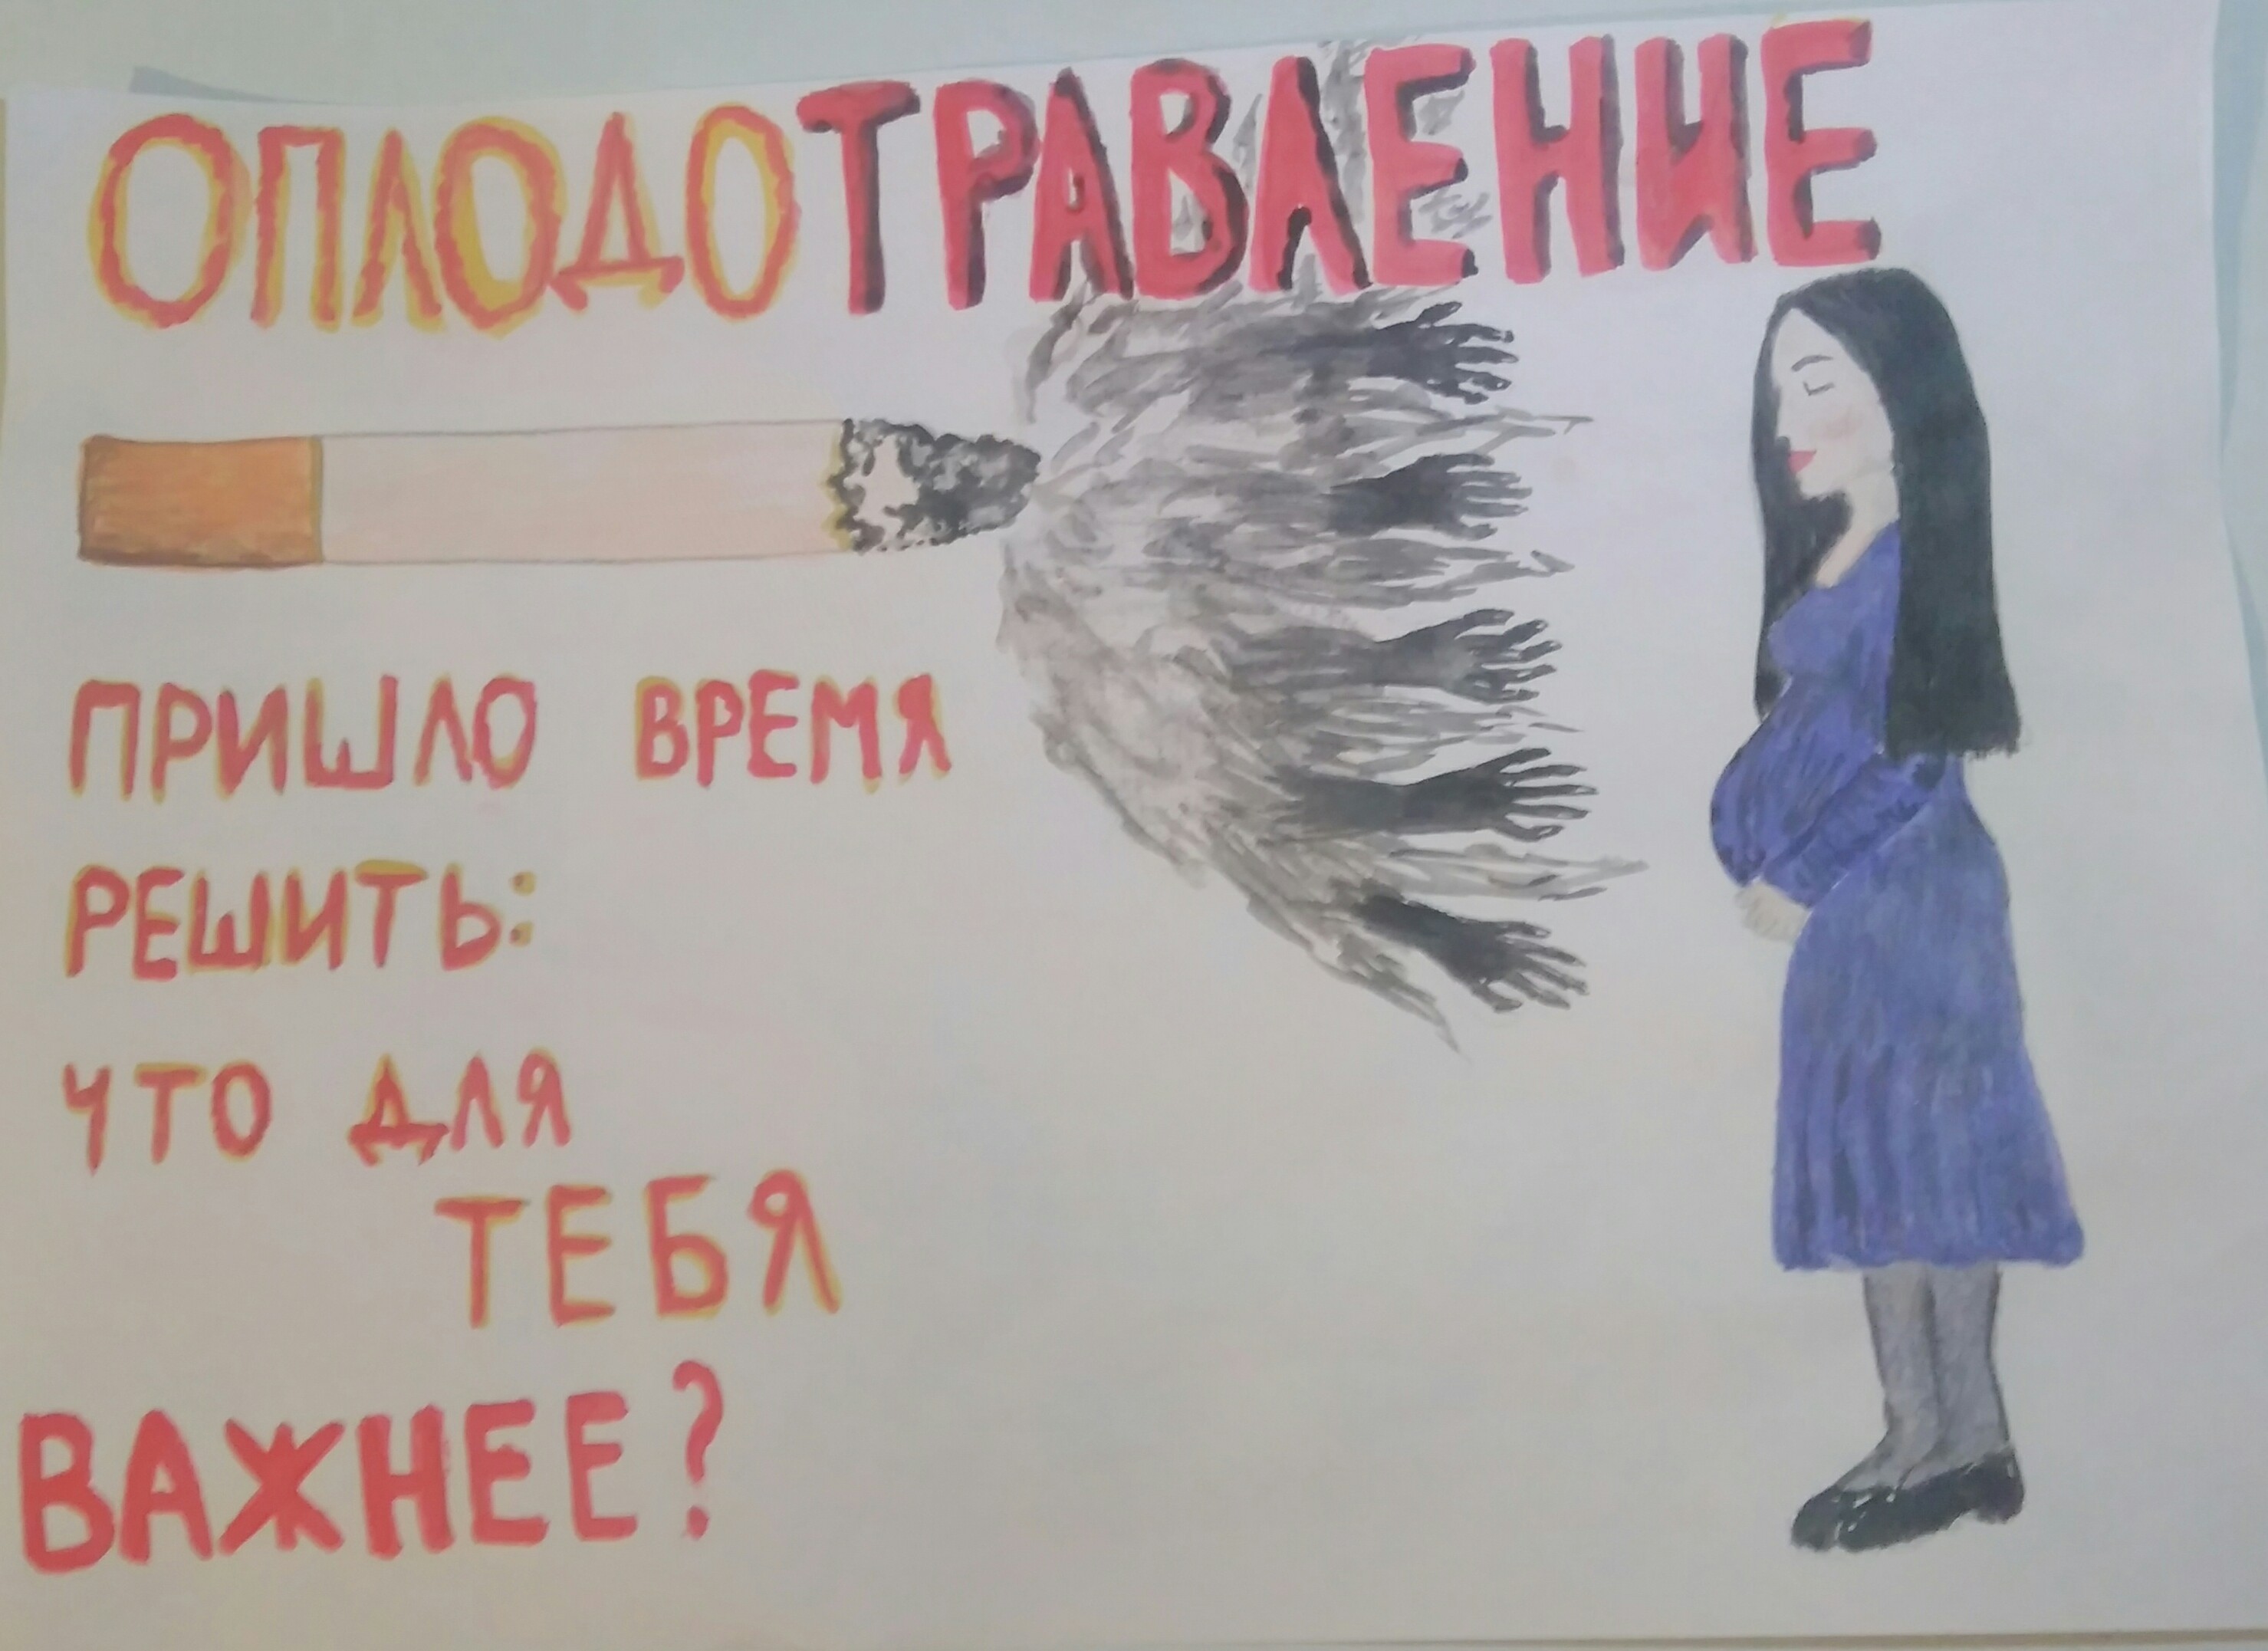 ОПЛОДОТРАВЛЕНИЕ
ПРИШЛО ВРЕМЯ
РЕШИТЬ:
ЧТО ДЛЯ
ТЕБЯ
ВАЖНЕЕ?